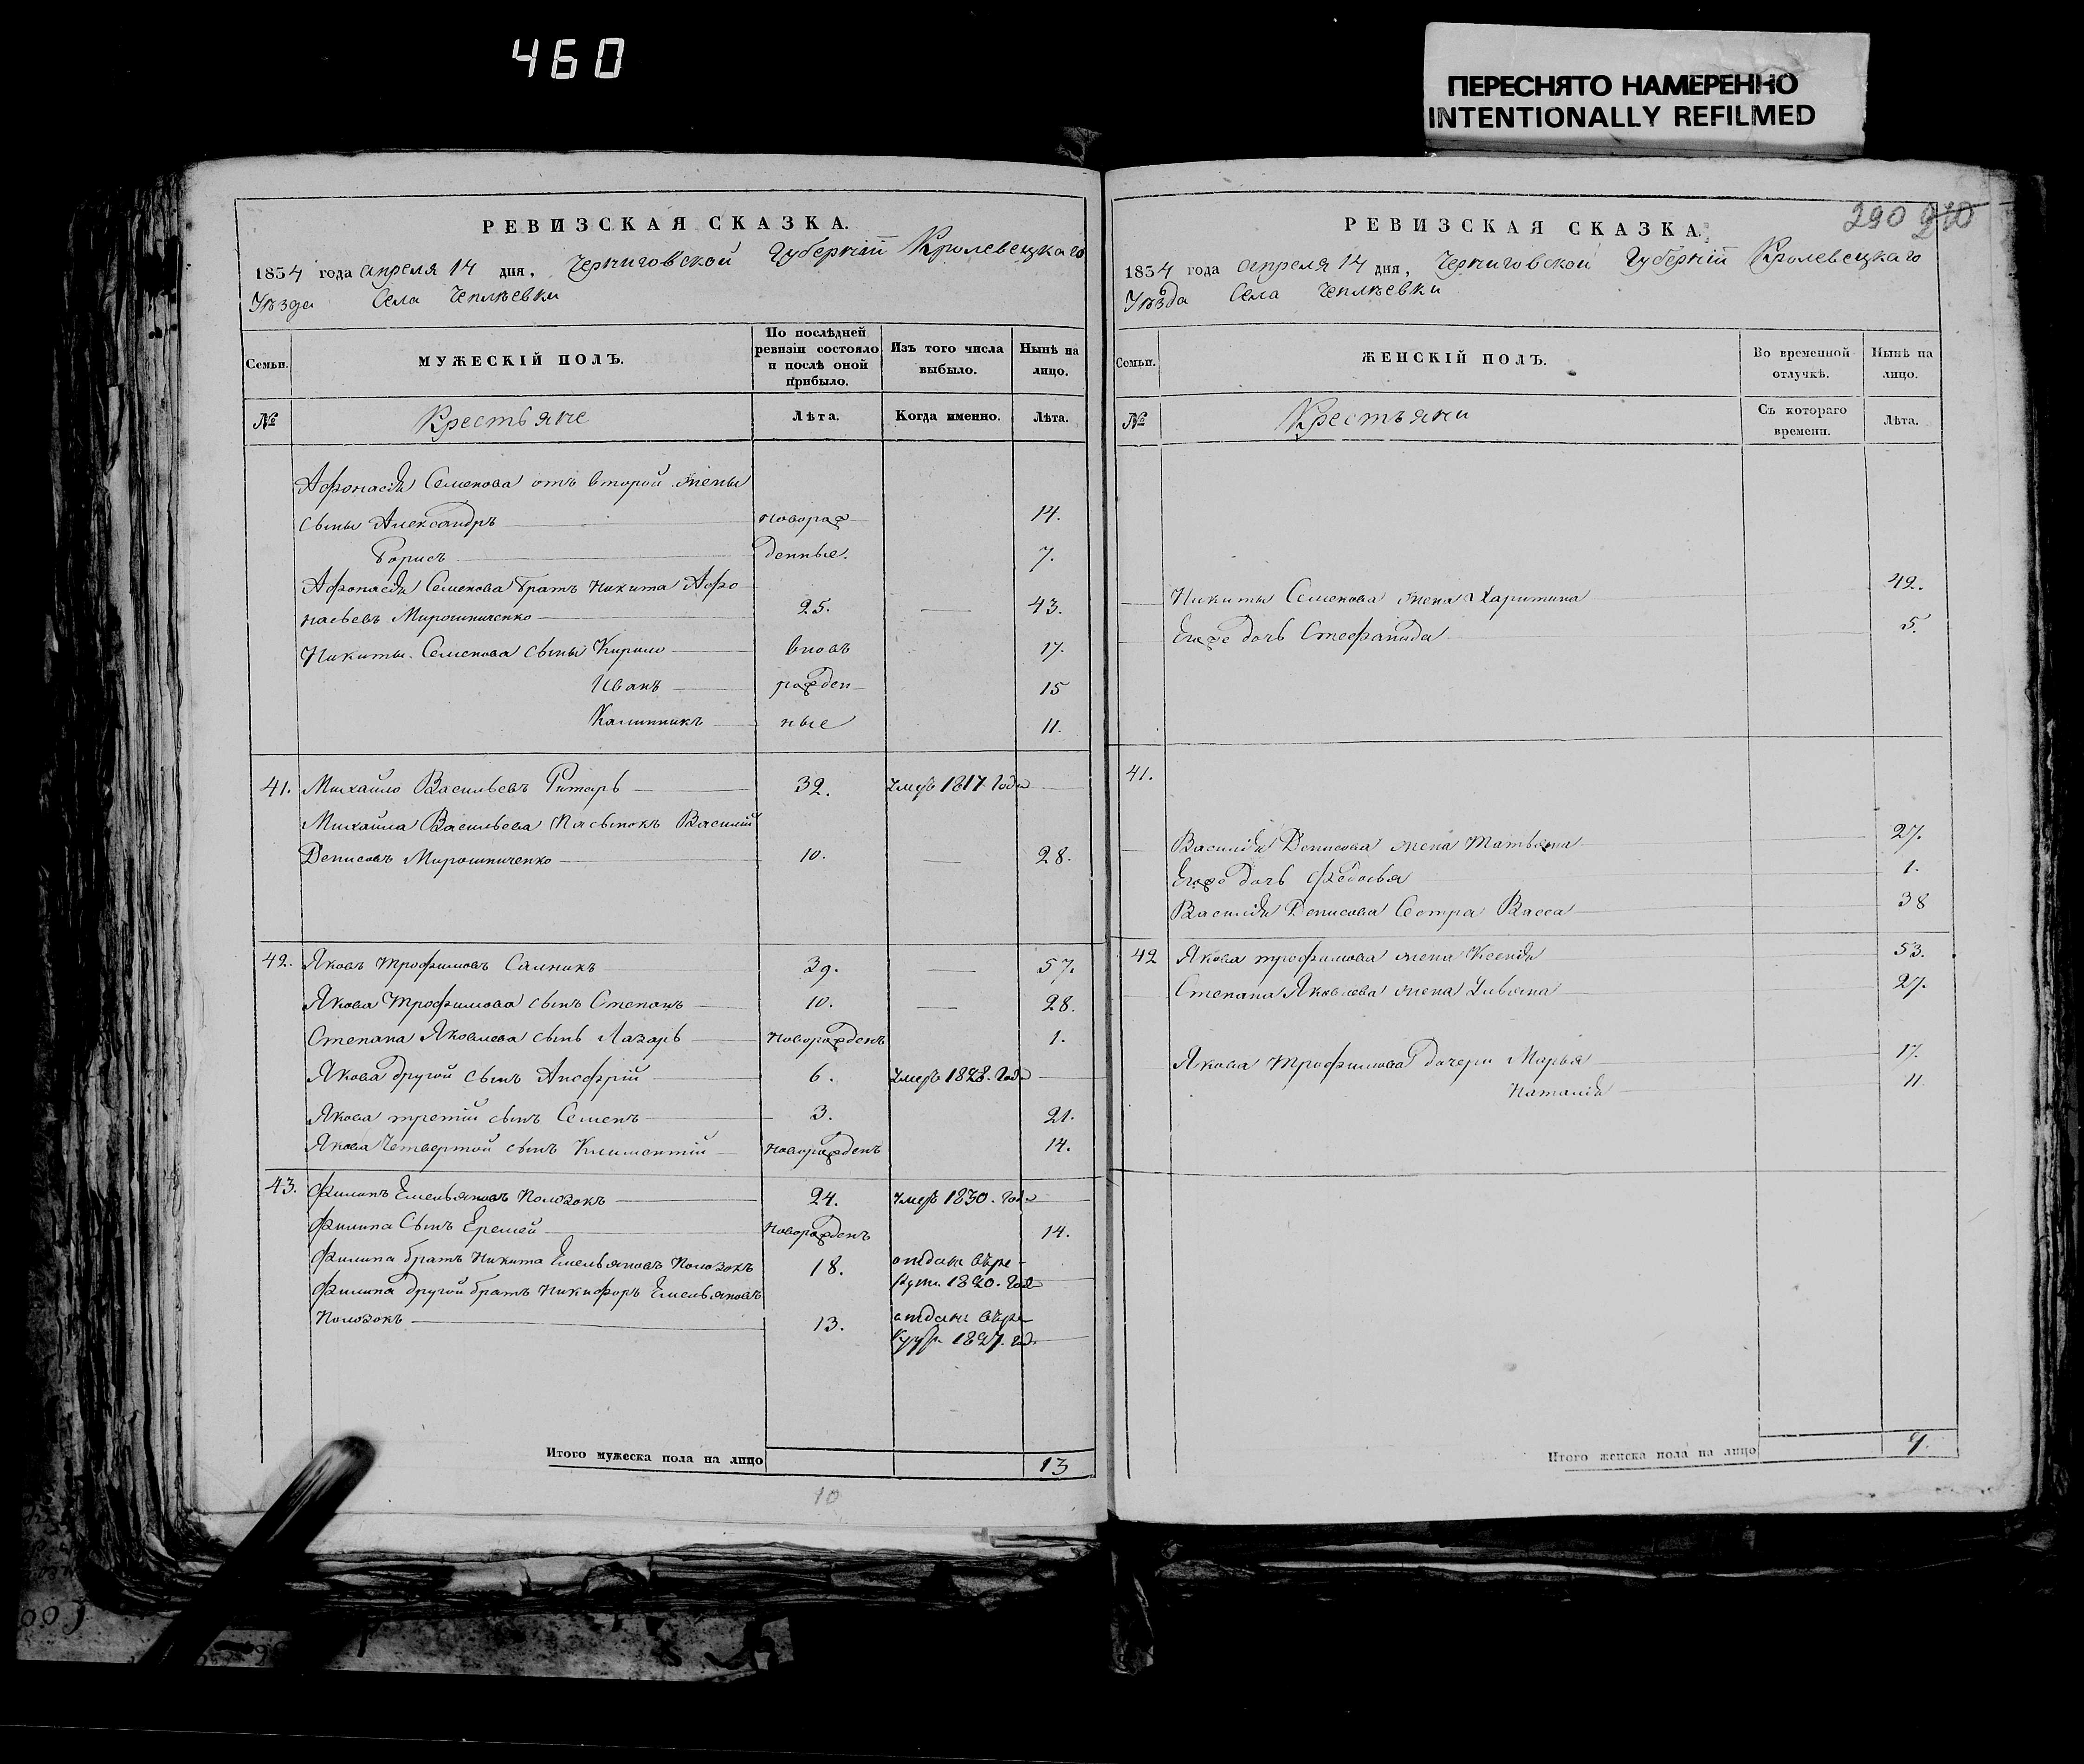 460
ПЕРЕСНЯТО НАМЕРЕННО
INTENTIONALLY REFILMED
РЕВИЗСКАЯ СКАЗКА.
1834 года апреля 14 дня, Черниговской Губерніи Кролевецкаго
Уѣзда Села Чеплѣевки
Семьи.
МУЖЕСКІЙ ПОЛЪ.
По послѣдней ревизіи состояло и послѣ оной прибыло.
Изъ того числа выбыло.
Нынѣ на лицо.
№ Крестьяне Лѣта. Когда именно. Лѣта.
Афонасія Семенова отъ второй жены
сыны Александръ новорож 14.
Борисъ денные. 7.
Афонасія Семенова братъ Никита Афо
насьевъ Мирошниченко 25. — 43.
Никиты Семенова сыны Кирило вновь 17.
Иванъ рожден 15
Калинникъ ные 11.
41. Михайло Васильевъ Ритарь 32. умеръ 1817 Года
Михайла Васильева Пасынокъ Василій
Денисовъ Мирошниченко 10. — 28.
42. Яковъ Трофимовъ Салникъ 39. — 57.
Якова Трофимова сынъ Степанъ 10. — 28.
Степана Яковлева сынъ Лазарь Новорожденъ 1.
Якова другой сынъ Анофрій 6. умеръ 1828. Года
Якова третій сынъ Семенъ 3. 21.
Якова Четвертой сынъ Климентій Новорожденъ 14.
43. Филипъ Емельяновъ Полозокъ 24. умеръ 1830. Года
Филипа Сынъ Еремей Новорожденъ 14.
Филипа братъ Никита Емельяновъ Полозокъ 18. отданъ въре
круты 1820. Года
Филипа другой братъ Никифоръ Емельяновъ
Полозокъ 13. отданъ въре
1827. год.
Итого мужеска пола на лицо 13
10
290 210
РЕВИЗСКАЯ СКАЗКА.
1834 года апреля 14 дня, Черниговской Губерніи Кролевецкаго
Уѣзда Села Чеплѣевки
Семьи.
ЖЕНСКІЙ ПОЛЪ.
Во временной отлучкѣ.
Нынѣ на лицо.
№ Крестьяни Съ котораго времени. Лѣта.
Никиты Семенова жена Харитина 42.
Егоже дочь Стефанида 5.
41.
Василія Денисова жена Татьяна 27.
Егоже дочь Федосья 1.
Василія Денисова Сестра Васса 38
42 Якова трофимова жена Ксенія 53.
Степана Яковлева жена Ульяна 27.
Якова Трофимова дочери Марья 17.
Наталія 11
Итого женска пола на лицо 9.